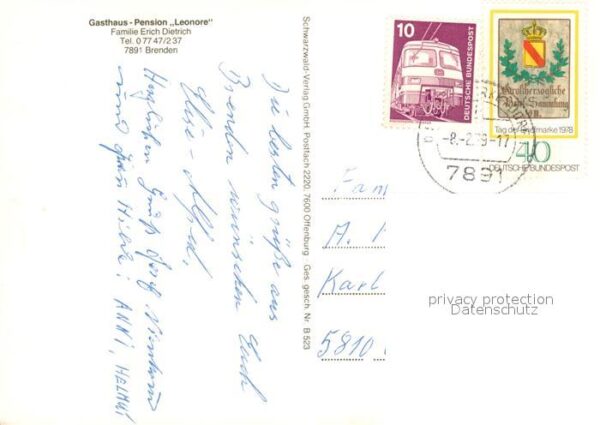 Gasthaus - Pension „Leonore"
Familie Erich Dietrich
Tel. 0 77 47/2 37
7891 Brenden
Die besten Grüße aus
Brenden wünschen Euch
Elise - Alfred.
Herzlichen Gruß
und Frau Hilde! ANNI, HELMUT
Schwarzwald-Verlag GmbH, Postfach 2220, 7600 Offenburg · Ges. gesch. Nr. B 523
10
DEUTSCHE BUNDESPOST
Großherzogliche
Sammlung
Tag der Briefmarke 1978
40
DEUTSCHE BUNDESPOST
-8.-2.79-17
7891
Fam
A. 
Karl
5810
privacy protection
Datenschutz